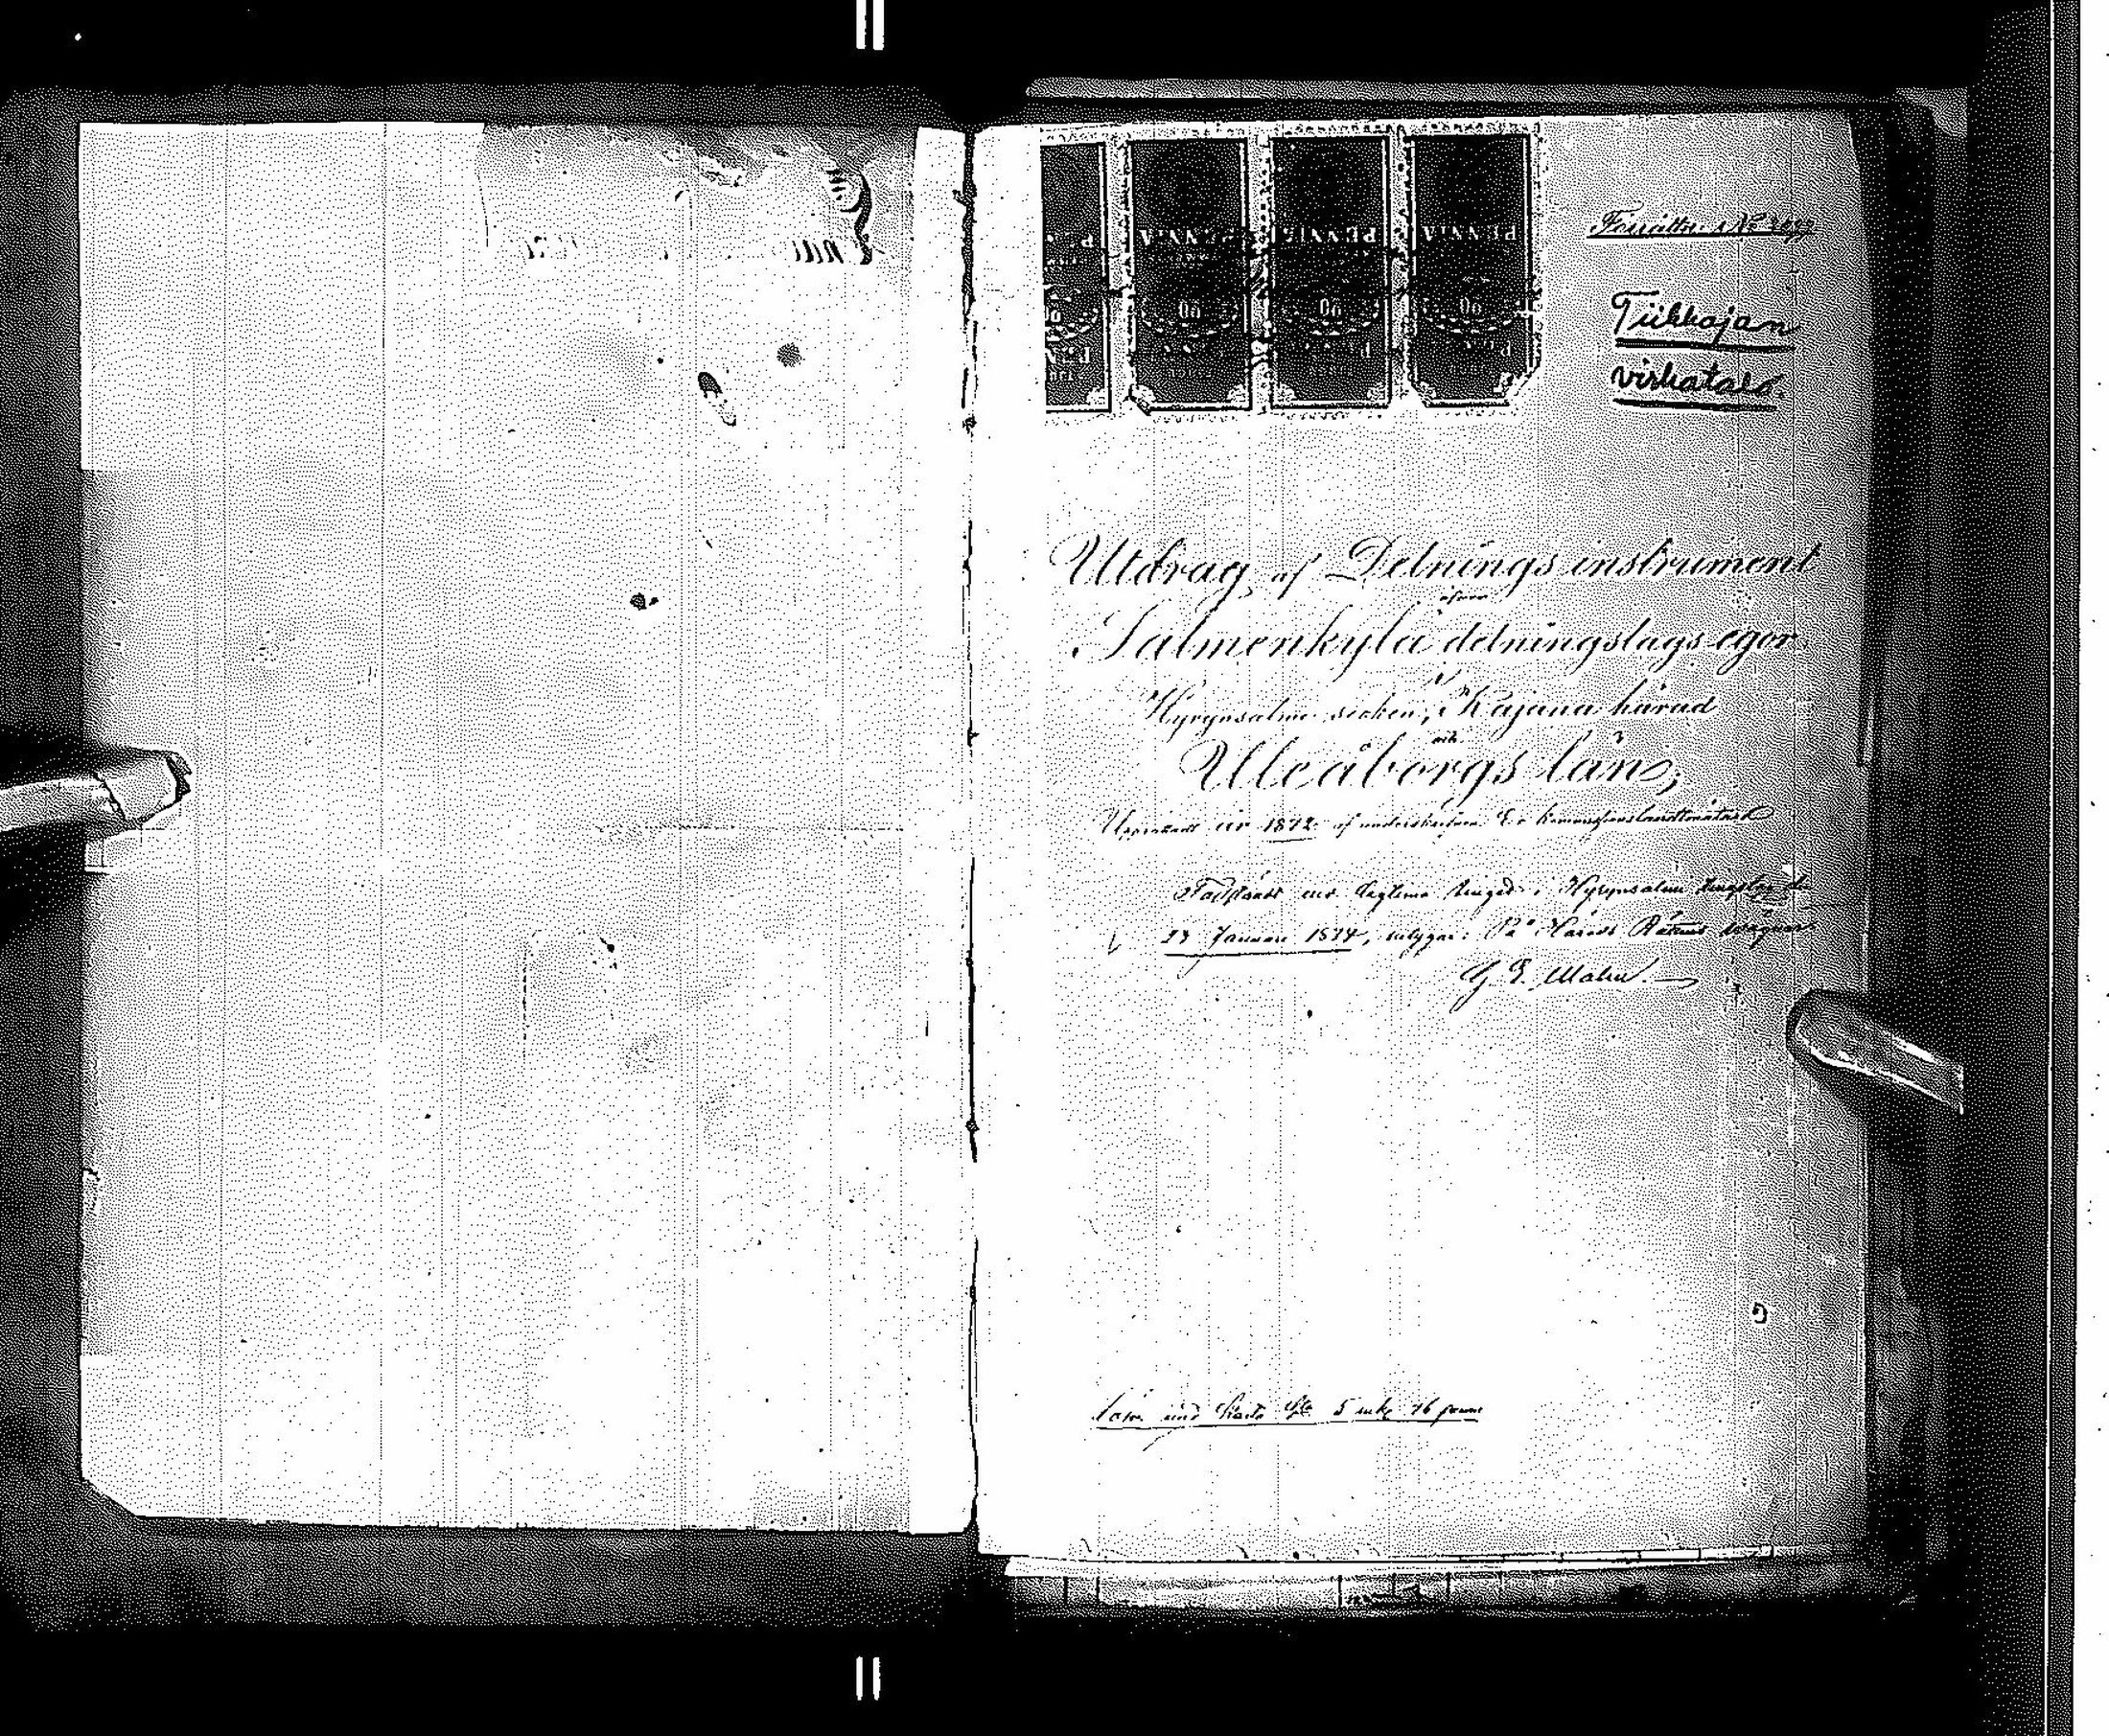 PENNIÄ PENNIÄ PENNIÄ
Förrättn:s No
Tiikkajan
virkatalo.
Utdrag af Delnings instrument
öfver
Salmenkylä delningslags egor
i
Hyrynsalmi socken, Kajana härad
och
Uleåborgs län,
Upprättadt år 1872 af undertecknad
Fastställdt vid lagtima tinget i Hyrynsalmi tingslag den
23 Januari 1874, betygar: På Härads Rättens vägnar
Lösen med Karta 5 mk 76 penni